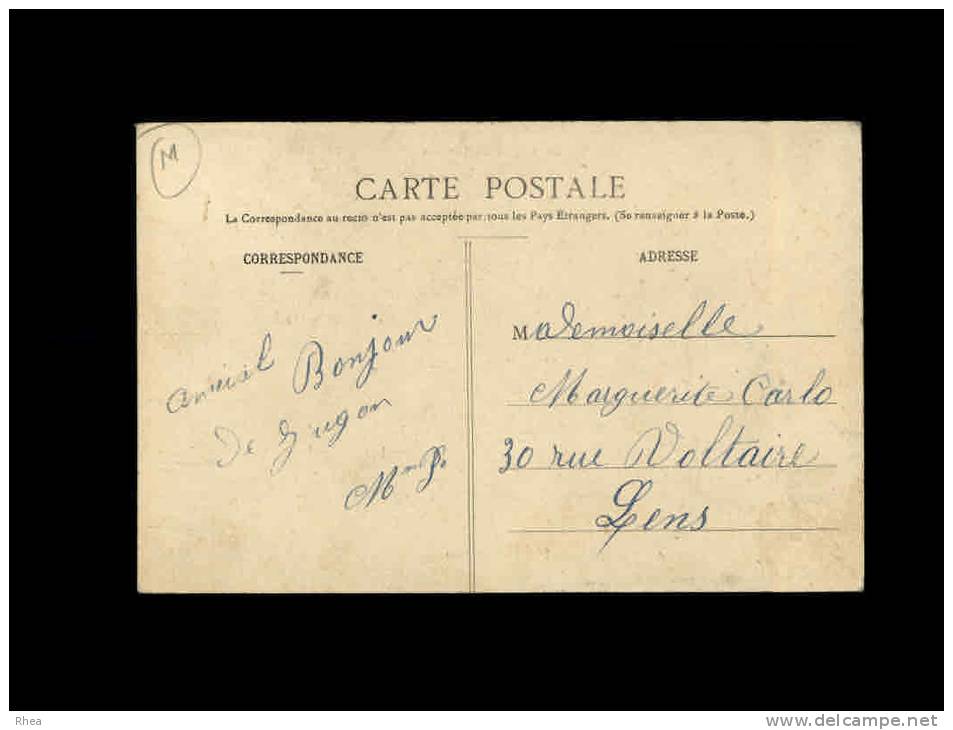 M
CARTE POSTALE
La Correspondance au recto n'est pas acceptée par tous les Pays Étrangers. (Se renseigner à la Poste.)
CORRESPONDANCE
ADRESSE
amical Bonjour
De
Mme P.
Mademoiselle
Marguerite Carlo
30 rue Voltaire
Lens
Rhea
www.delcampe.net